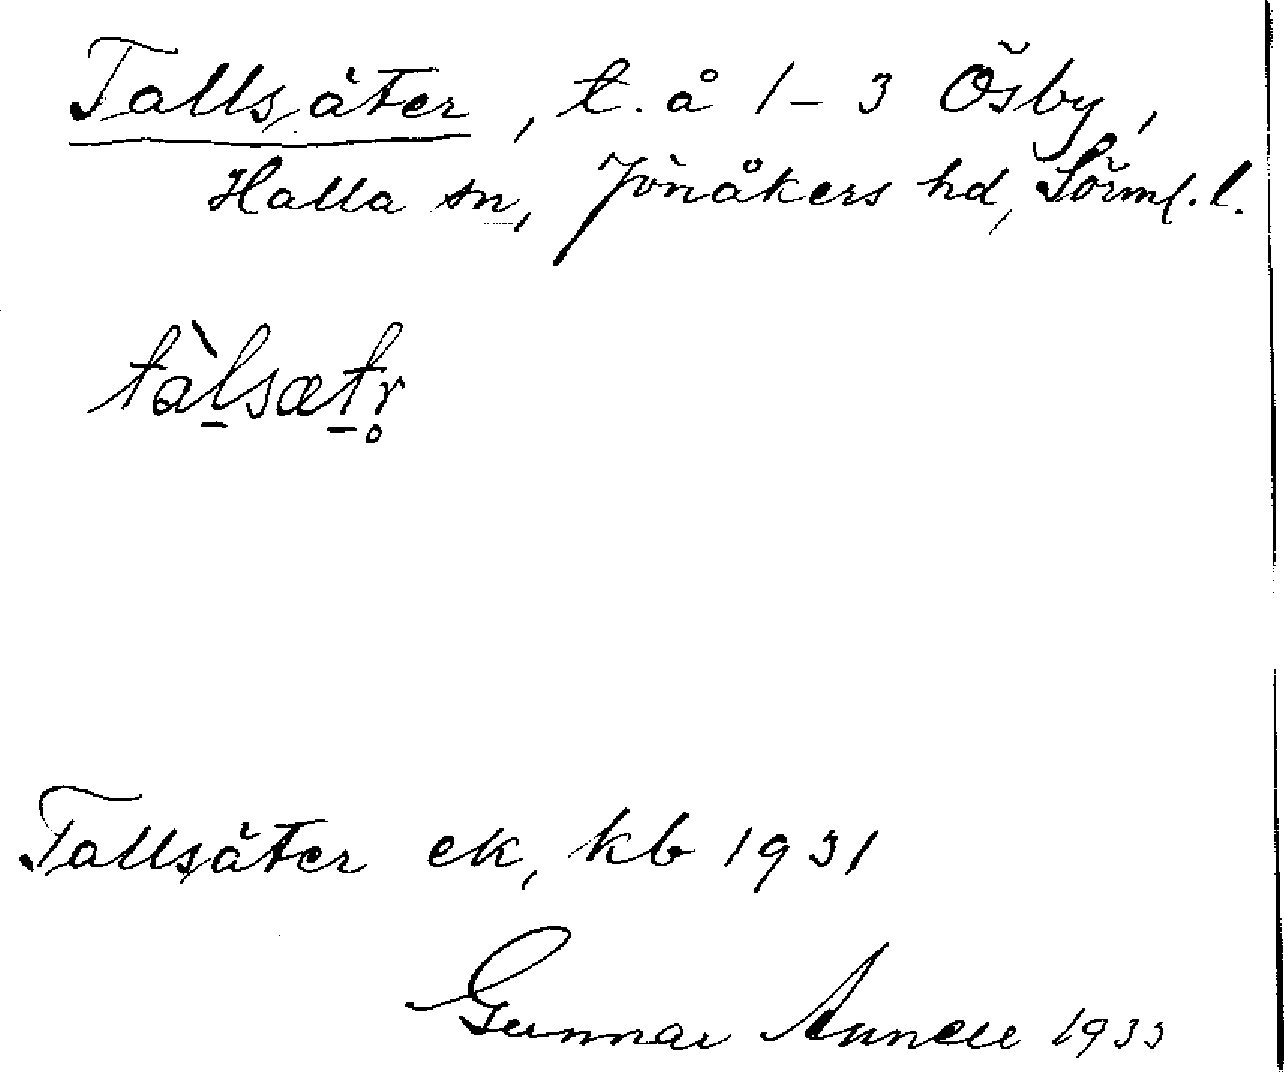 Tallsäter, t. å 1-3 Ösby,
Halla sn, Jönåkers hd, Sörml. l.
tàl̠sæt̠r̥
Tallsäter ek, kb 1931
Gunnar Annell 1933